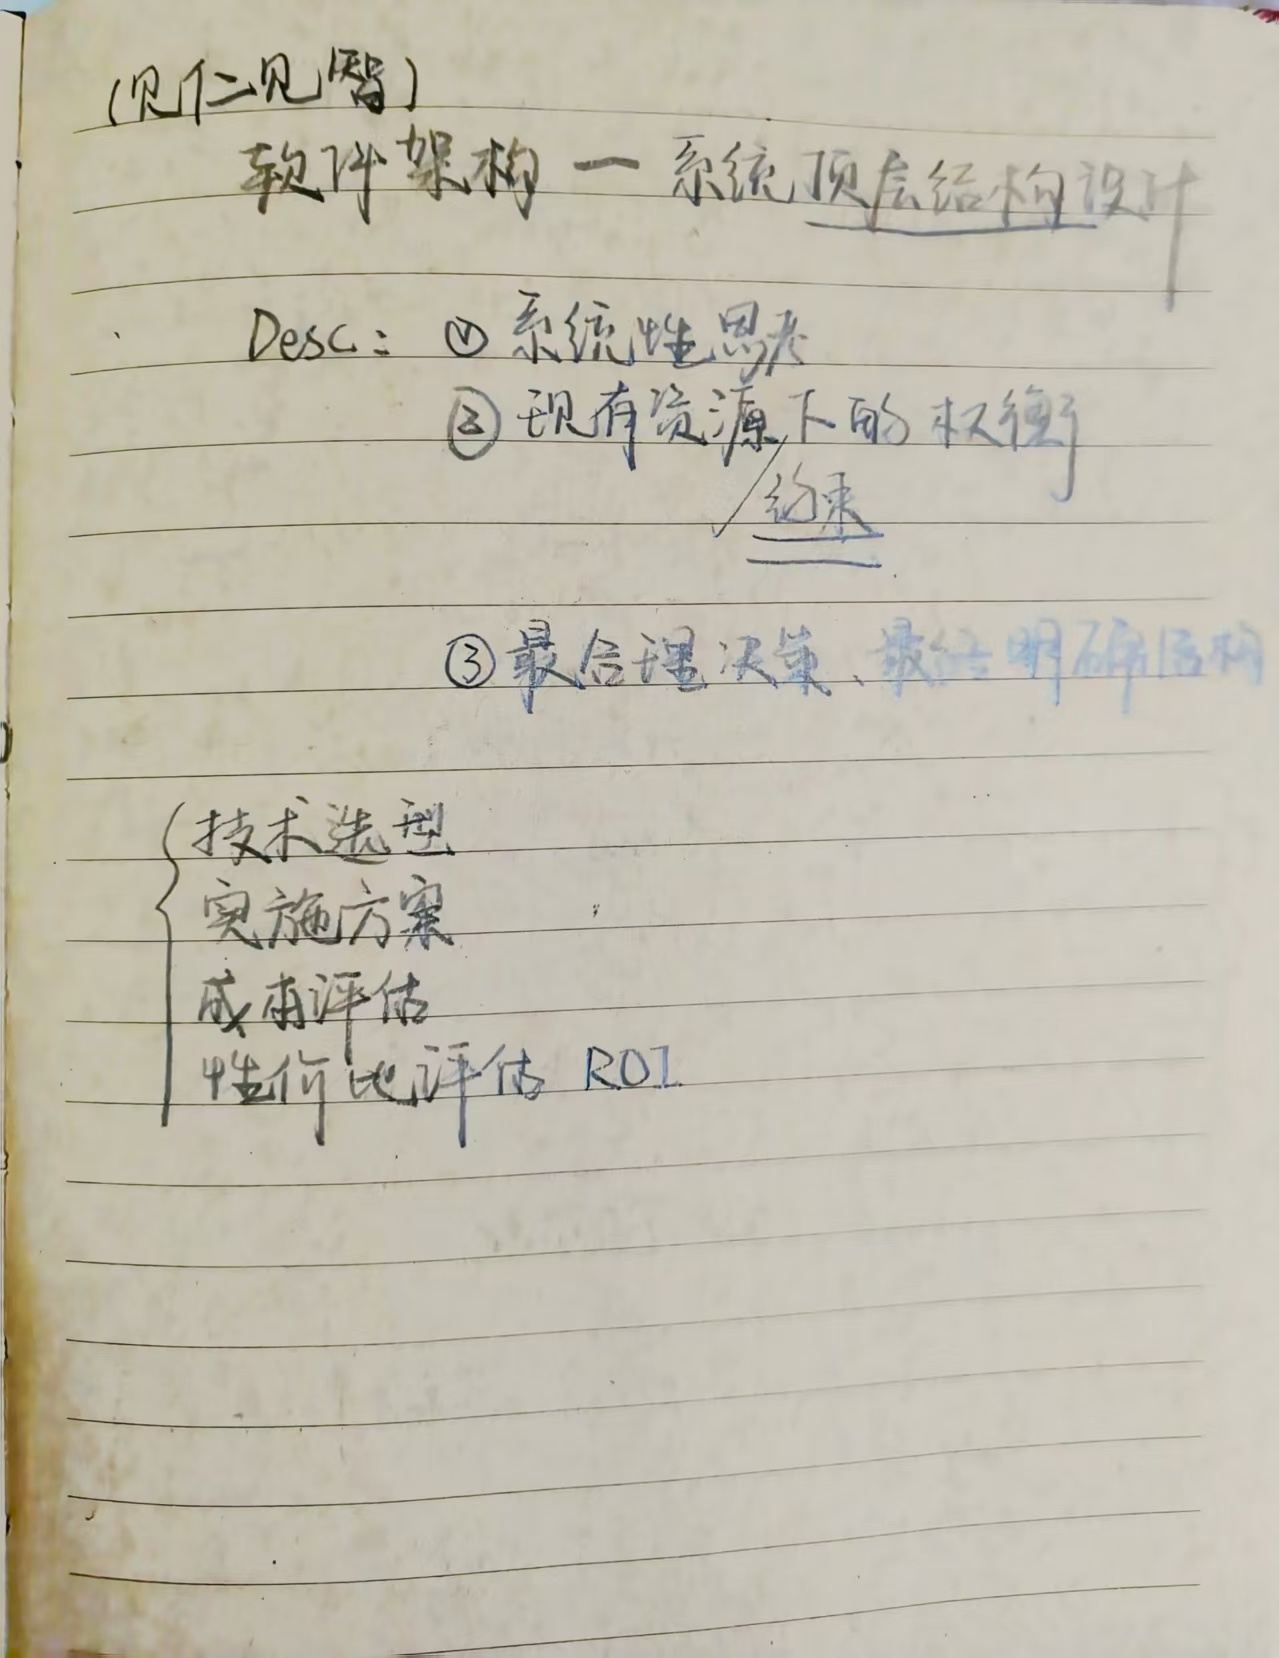 (见仁见智)
软件架构 — 系统顶层结构设计
Desc: ① 系统性思考
② 现有资源下的权衡
约束
③ 最合理决策、最终明确结构
技术选型
实施方案
成本评估
性价比评估 ROI